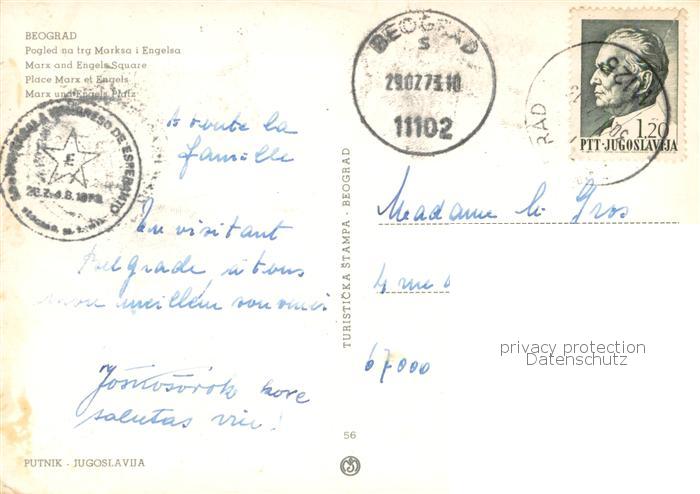 BEOGRAD
Pogled na trg Marksa i Engelsa
Marx and Engels Square
Place Marx et Engels
Marx und Engels Platz
A toute la
famille
En visitant
Belgrade à tous
mon meilleur souvenir
kore
salutas vin!
PUTNIK - JUGOSLAVIJA
KONGRESO DE ESPERANTO
E
28.7.-4.8.1973
TURISTIČKA ŠTAMPA - BEOGRAD
56
BEOGRAD
5
29.07.73.10
11102
1.20
PTT-JUGOSLAVIJA
Madame Gros
4 rue
67000
privacy protection
Datenschutz